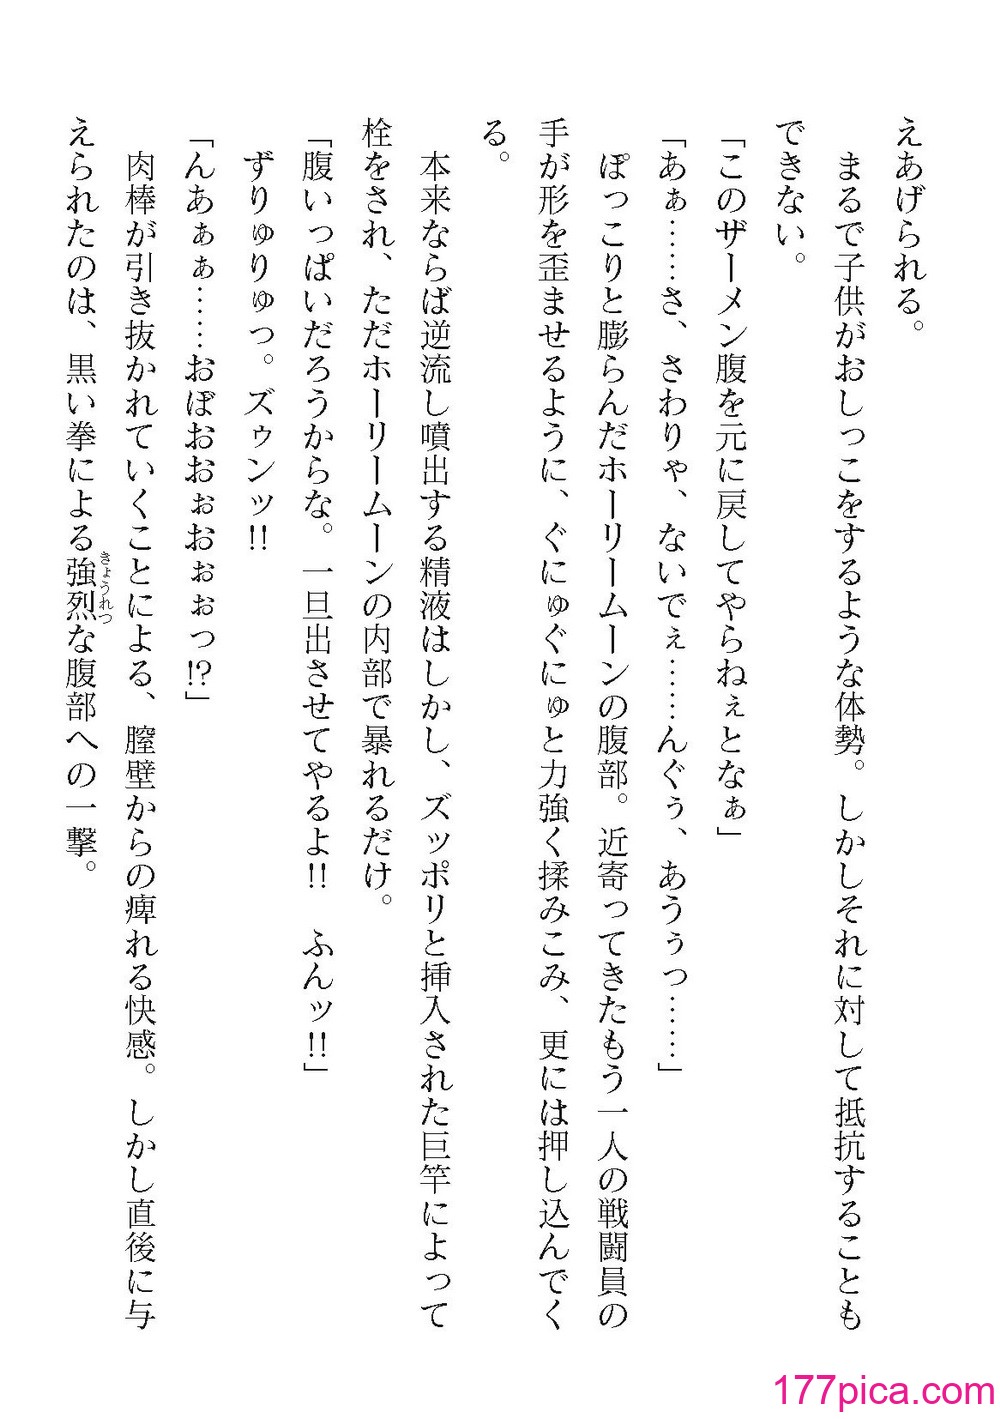 えあげられる。
まるで子供がおしっこをするような体勢。しかしそれに対して抵抗することも
できない。
「このザーメン腹を元に戻してやらねぇとなぁ」
「あぁ……さ、さわりゃ、ないでぇ……んぐぅ、あうぅっ……」
ぽっこりと膨らんだホーリームーンの腹部。近寄ってきたもう一人の戦闘員の
手が形を歪ませるように、ぐにゅぐにゅと力強く揉みこみ、更には押し込んでく
る。
本来ならば逆流し噴出する精液はしかし、ズッポリと挿入された巨竿によって
栓をされ、ただホーリームーンの内部で暴れるだけ。
「腹いっぱいだろうからな。一旦出させてやるよ!!　ふんッ!!」
ずりゅりゅっ。ズゥンッ!!
「んあぁぁ……おぼおおぉおぉぉっ!?」
肉棒が引き抜かれていくことによる、膣壁からの痺れる快感。しかし直後に与
えられたのは、黒い拳による強烈な腹部への一撃。
きょうれつ
177pica.com